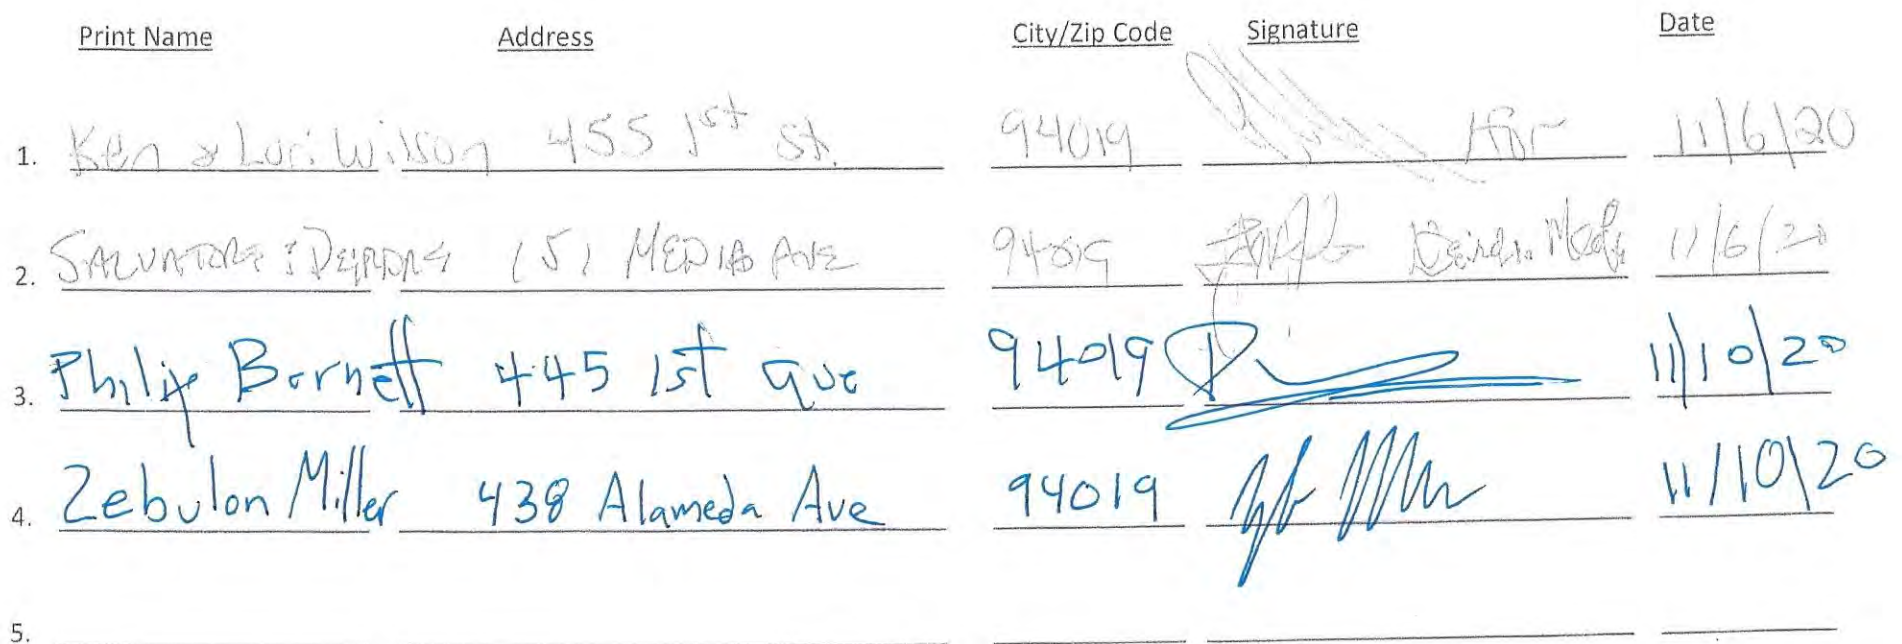 Print Name Address City/Zip Code Signature Date
1. Ken & Lori Wilson 455 1st St. 94019 11/6/20
2. SALVATORE & DEIRDRE 151 MEDIO AVE 94019 11/6/20
3. Philip Barnett 445 1st ave 94019 11/10/20
4. Zebulon Miller 438 Alameda Ave 94019 11/10/20
5.